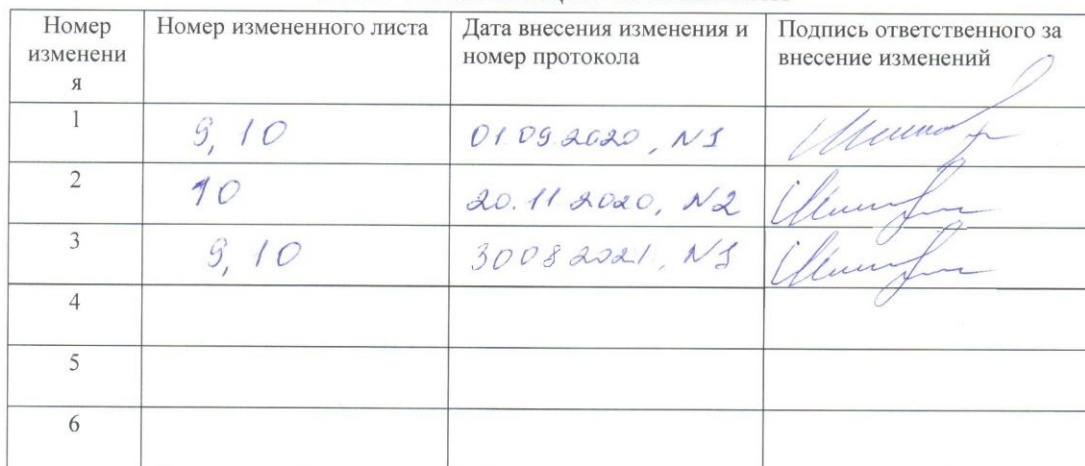 Номер изменени я Номер измененного листа Дата внесения изменения и номер протокола Подпись ответственного за внесение изменений
1 9, 10 01.09.2020, N1
2 10 20.11 2020, N2
3 9, 10 30 08 2021, N1
4
5
6